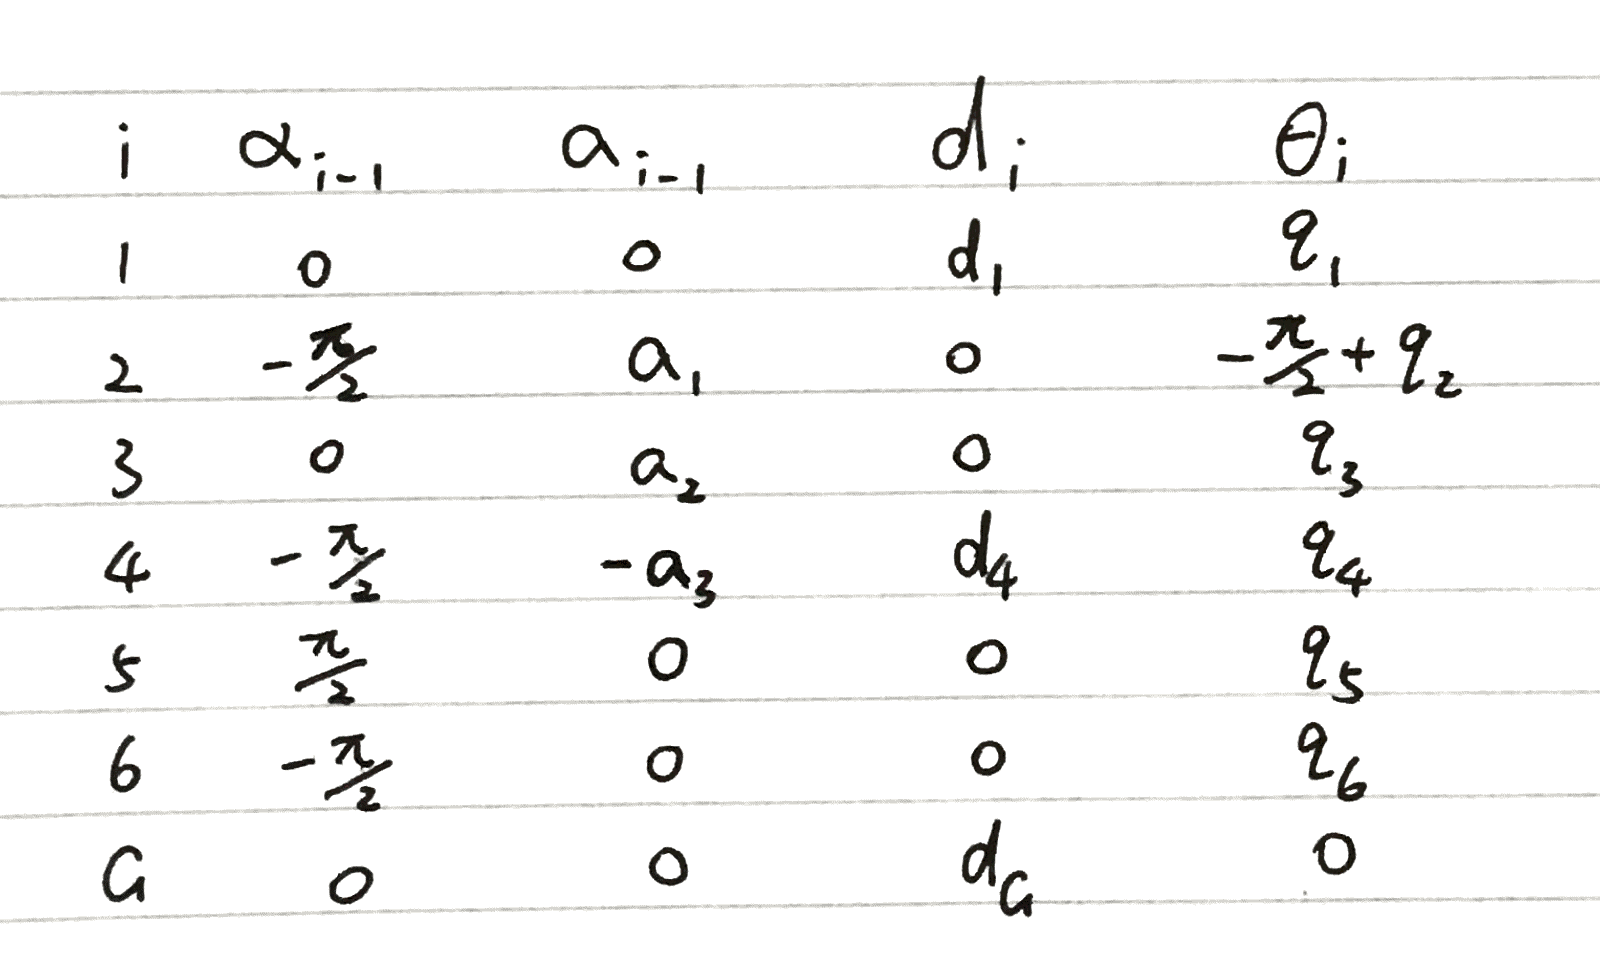 i αᵢ₋₁ aᵢ₋₁ dᵢ θᵢ
1 0 0 d₁ q₁
2 -π/2 a₁ 0 -π/2 + q₂
3 0 a₂ 0 q₃
4 -π/2 -a₃ d₄ q₄
5 π/2 0 0 q₅
6 -π/2 0 0 q₆
G 0 0 d_G 0